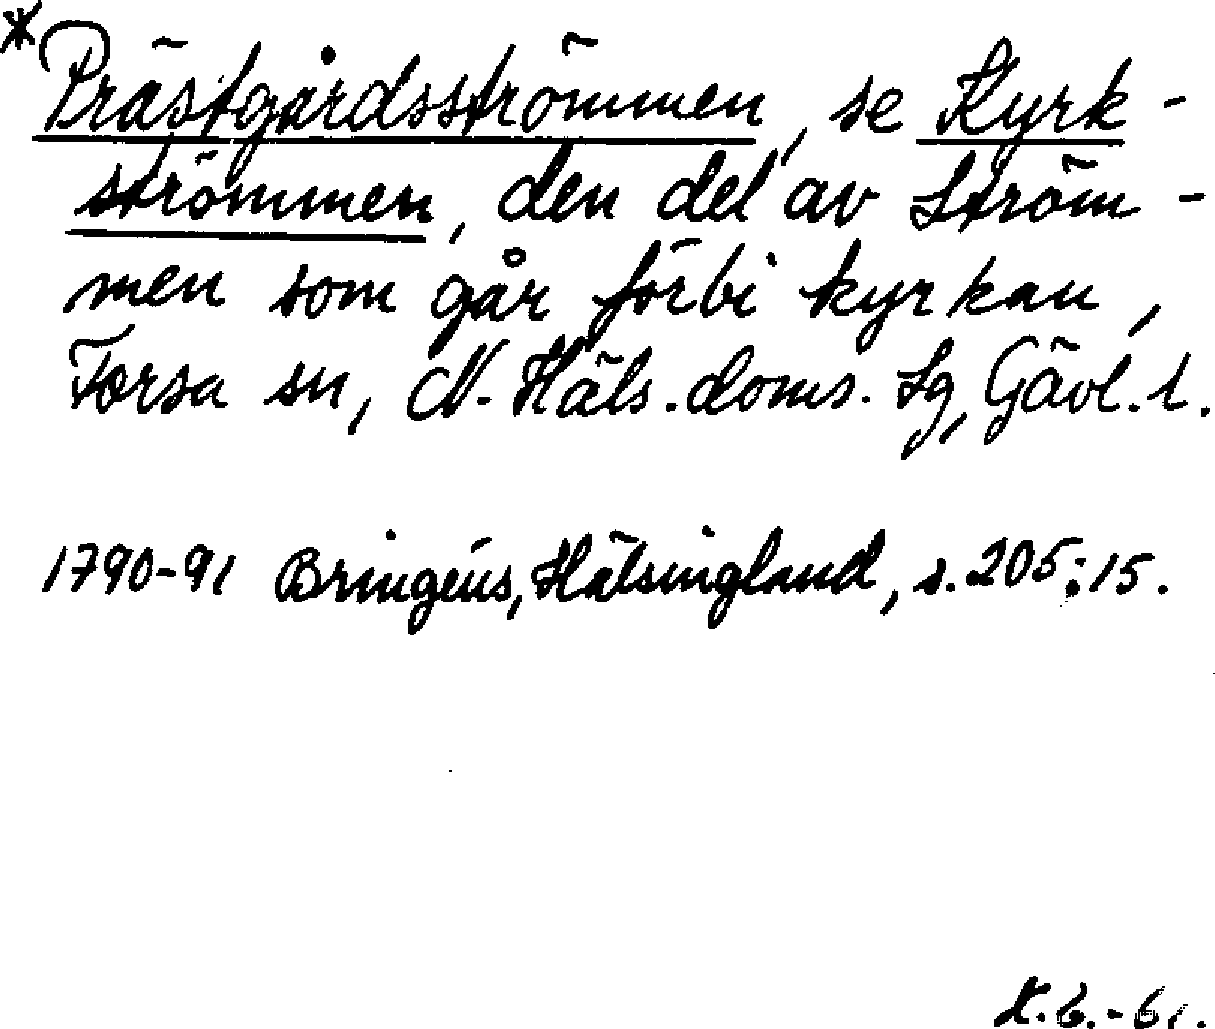 *Prästgårdsströmmen, se Kyrk-
strömmen, den del av Ström-
men som går förbi kyrkan,
Forsa sn, N. Häls. doms. sg, Gävl. l.
1790-91 Bringéus, Hälsingland, s. 205:15.